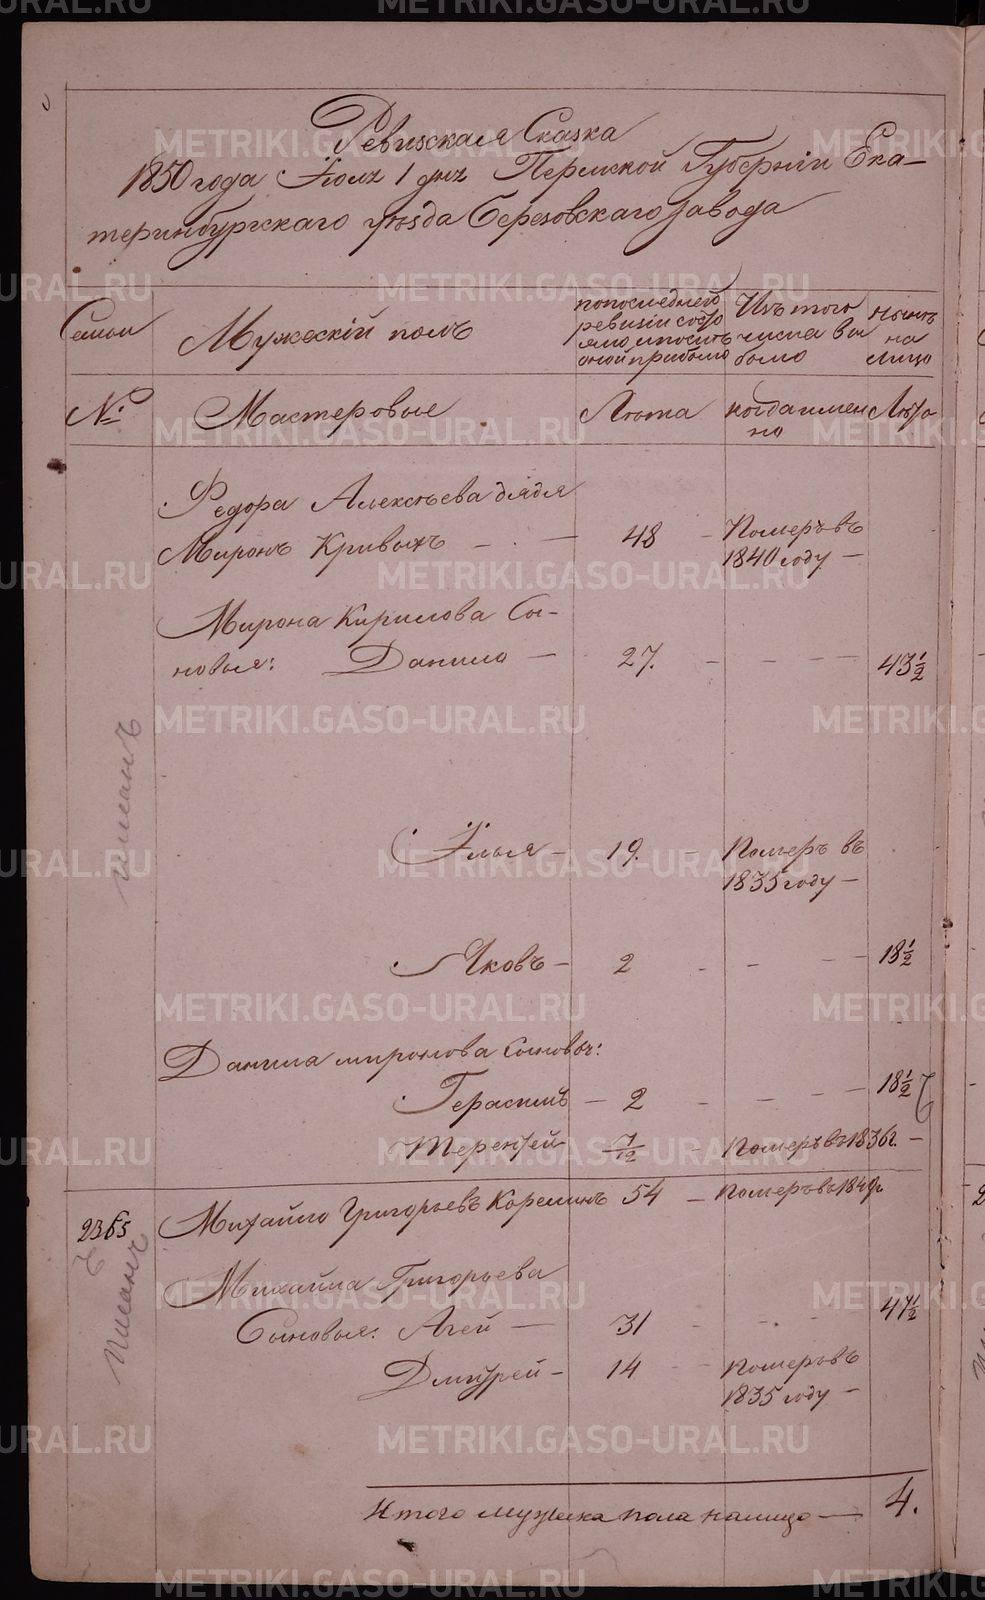 Ревизская Сказка
1850 года Іюля 1 дня Пермской Губерніи Ека-
теринбургскаго уѣзда Березовскаго завода
Семьи
Мужескій полъ
попоследней
ревизіи состо
яло ипослѣ
оной прибыло
Изъ того
числа вы
было
Нынѣ
на
Лицо
№
Мастеровые
Лѣта
когда имен
но
Лѣта
Федора Алексѣева дядя
Миронъ Кривыхъ - - 48 - Померъ въ
1840 году -
Мирона Кирилова Сы-
новья: Данило - 27. - - - - 43 1/2
писанъ
Илья - 19. - Померъ въ
1835 году -
Яковъ - 2 - - - - 18 1/2
Данила миронова Сыновья:
Герасимъ - 2 - - - - 18 1/2
Терентей 7/12 - Померъ въ 1836 г. -
2365 Михайло Григорьевъ Корелинъ 54 - Померъ въ 1849 г
Писанъ
Михайла Григорьева
Сыновья: Агей - 31 - - - 47 1/2
Дмитрей - 14 - - Померъ въ
1835 году -
Итого мужеска пола налицо - 4.
METRIKI.GASO-URAL.RU